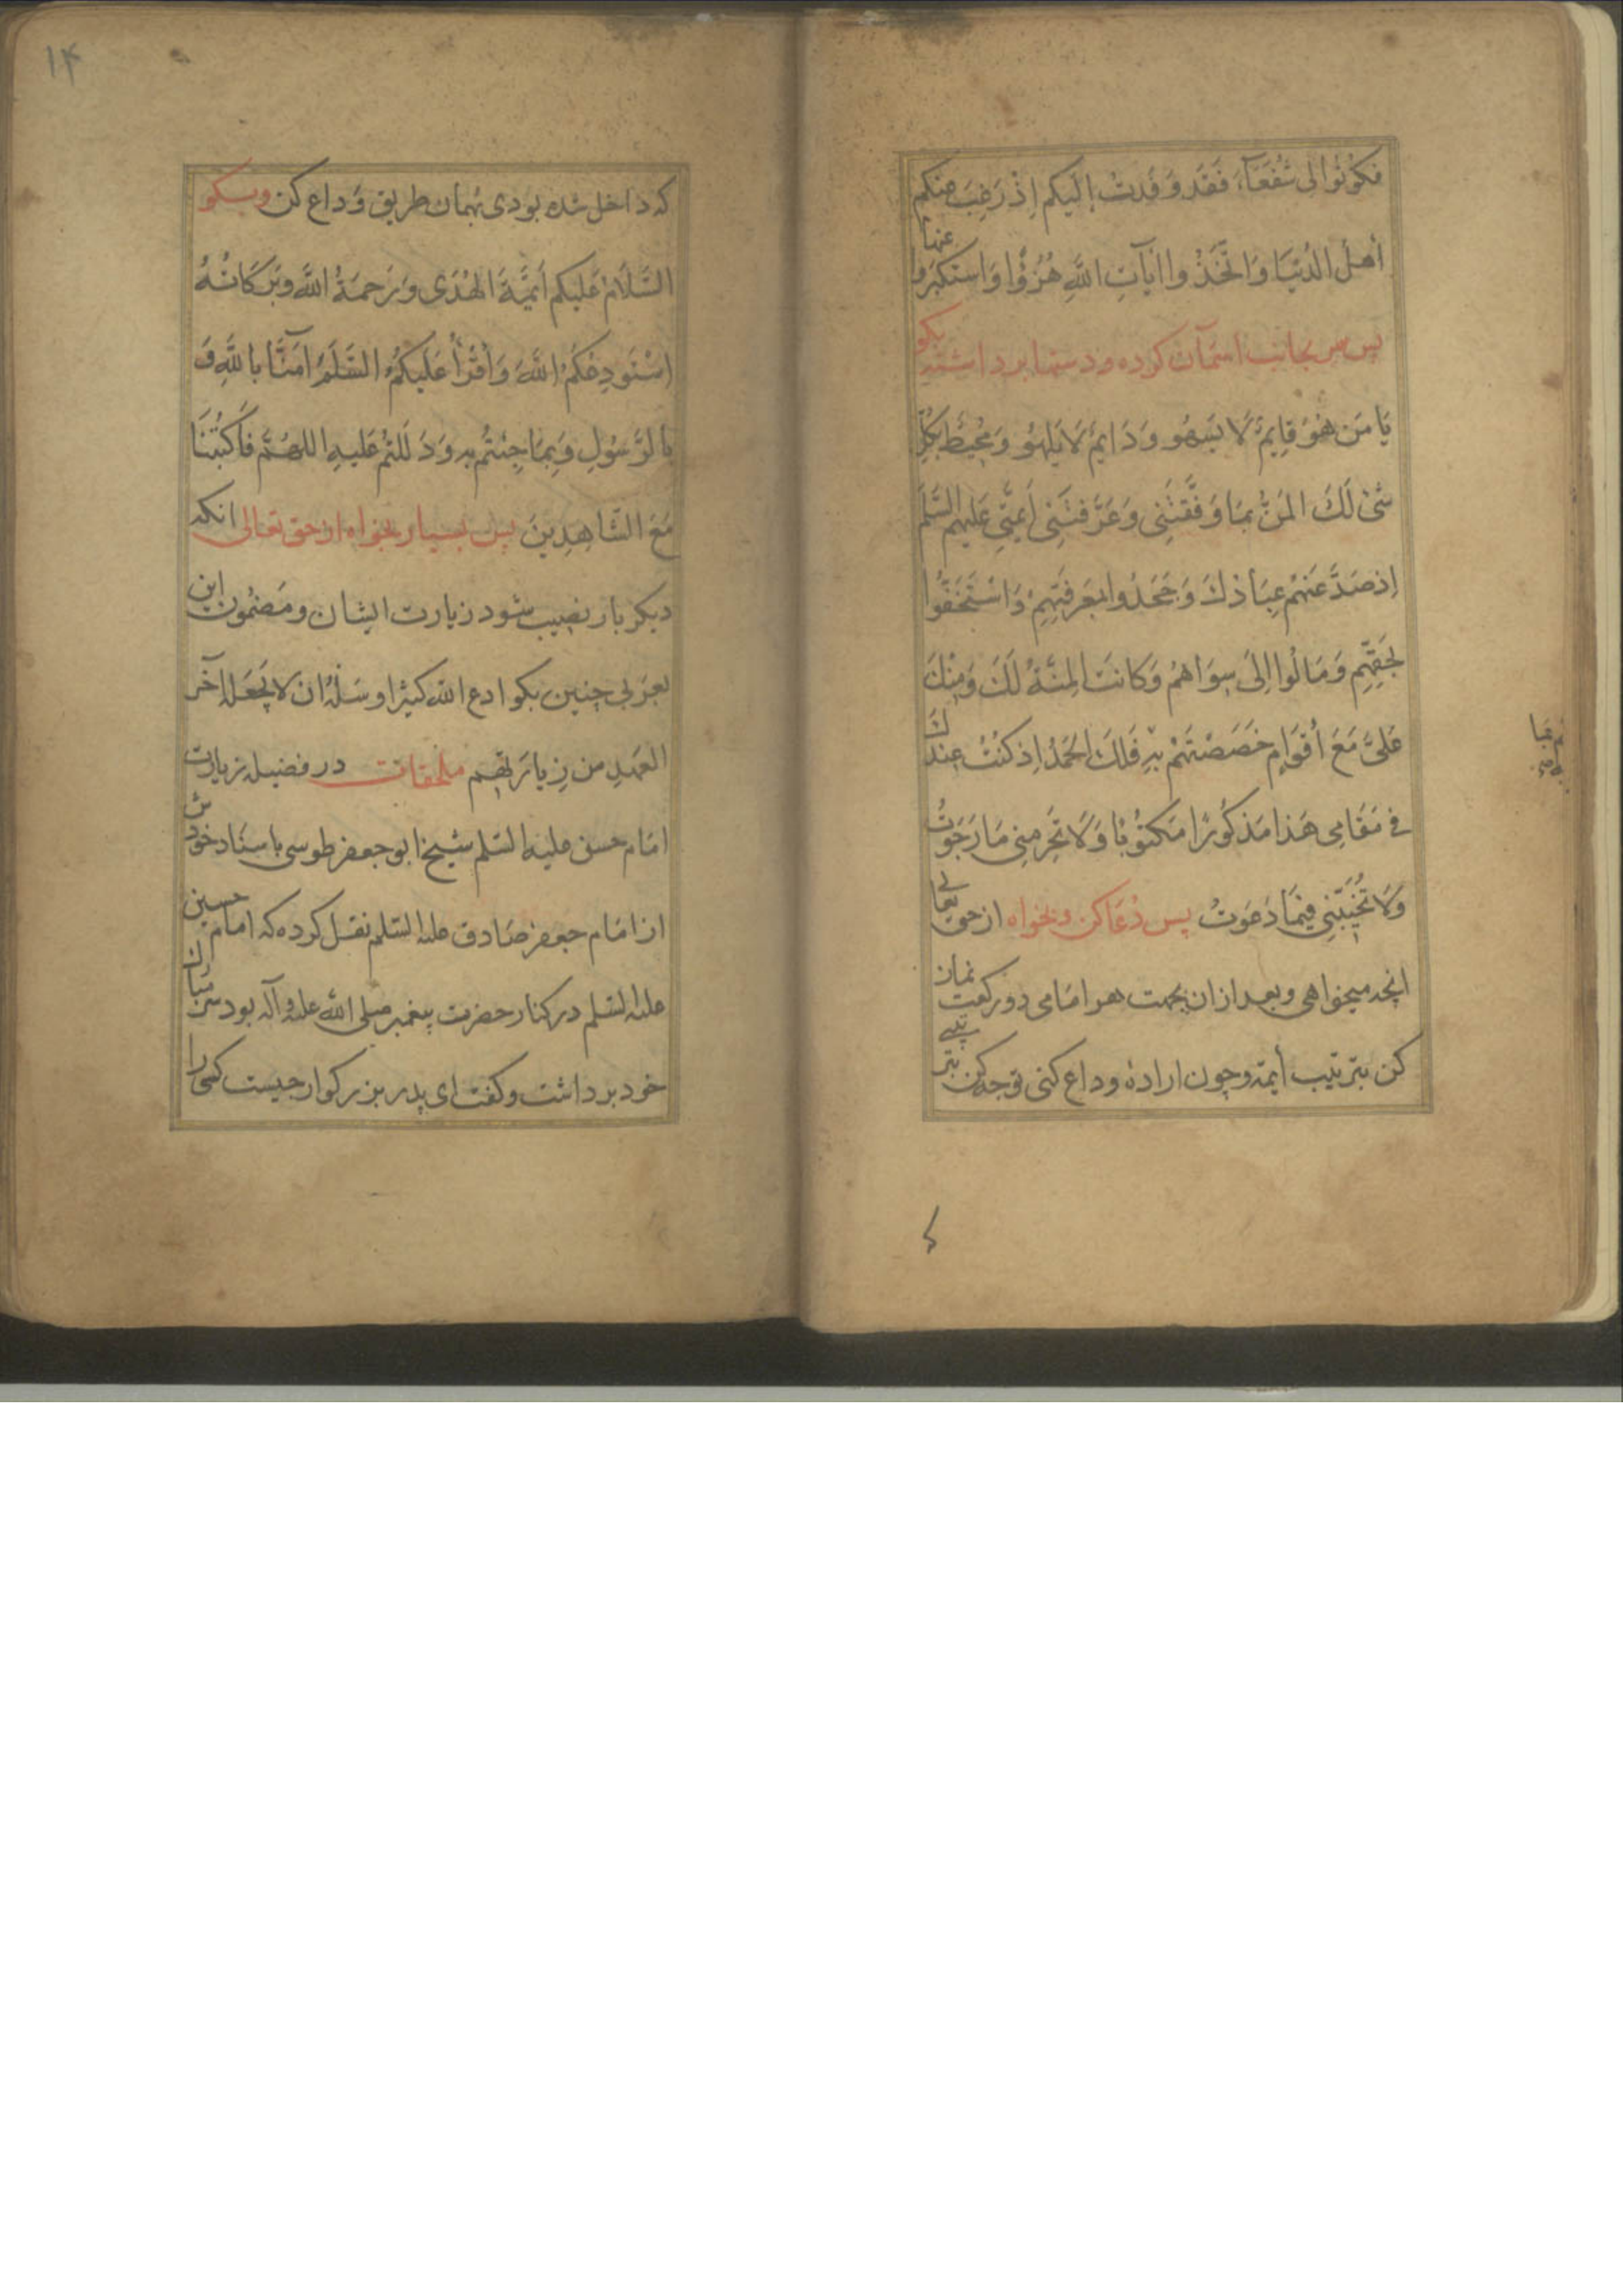 فَكُونُوا لِى شُفَعَآءَ فَقَد وَفَدتُ إِلَيكم إِذ رَغِبَ عنكم
أهل الدُنيَا وَاتَّخَذُوا اٰيَاتِ اللَّهِ هُزُؤًا وَاستَكبَروا عنها
پس سر بجانب اسمآن کرده و دستها برداشته بکو
يَا مَن هُوَ قَايِمٌ لَا يَسهُو وَ دَايمٌ لَا يَلهُو وَ مُحِيطٌ بِكُلِّ
شَئ لَكَ المَنُّ بِمَا وَفَّقتَنِى وَعَرَّفتَنِى أَئِمَّتِى عَلَيهِم السَّلَم
إذ صَدَّ عَنهُم عِبَادُكَ وَ جَحَدُوا بِمَعرِفَتِهِم وَ استَخَفّوا
بِحَقِّهِم وَ مَالُوا إِلَى سِوَاهُم وَ كَانَت المِنَّةُ لَكَ وَ مِنكَ
عَلَىَّ مَعَ أَقوَامٍ خَصَصتَهُم بِهِ فَلَكَ الحَمدُ إِذ كُنتُ عِندَكَ
فى مَقَامِى هَذا مَذكُورًا مَكتُوبًا وَلَا تَحرِمنِى مَا رَجَوتُ
وَلَا تُخَيِّبَنِى فِيمَا دَعَوتُ پس دُعَا کن و بخواه از حق تعالی
انچه میخواهی و بعد از ان بجهت هر امامی دو رکعت نماز
کن بترتیب أیمّه و چون اراده وداع کنی توجه کن
۱۴
که داخل شده بودی بهمان طریق وَداع کن وبکو
السَّلَامُ عَلَيكم أَئِمَّةَ الهُدَى وَ رَحمَةُ اللَّه وَبَرَكَاتُهُ
اَستَودِعُكُمُ اللَّهَ وَ أَقرَأُ عَلَيكُمُ السَّلَمَ اٰمَنَّا بِاللَّهِ وَ
بِالرَّسُولِ وَ بِمَا جِئتُم بِهِ وَ دَلَلتُم عَلَيهِ اللهُمَّ فَاكتُبنَا
مَعَ الشَّاهِدِينَ پس بسیار بخواه از حق تعالی انکه
دیکر بار نصیب شود زیارت ایشان و مَضمُون این
بعَرَبی چنین بکو ادع اللّه كثيرًا و سَلهُ ان لا يَجعَلَه آخر
العَهدِ من زِيارَتهم ملحقات در فضیلة زیارت
امَام حسین علیه السّلم شیخ ابو جعفر طوسی باسنَاد خودش
از امَام جعفر صَادق علیه السّلم نقل کرده که امَام حسین
علیه السّلم در کنار حضرت پیغمبر صلی اللّه علیه و آله بود سر مبارک
خود برداشت و کفت ای پدر بزرکوار چیست کسی را